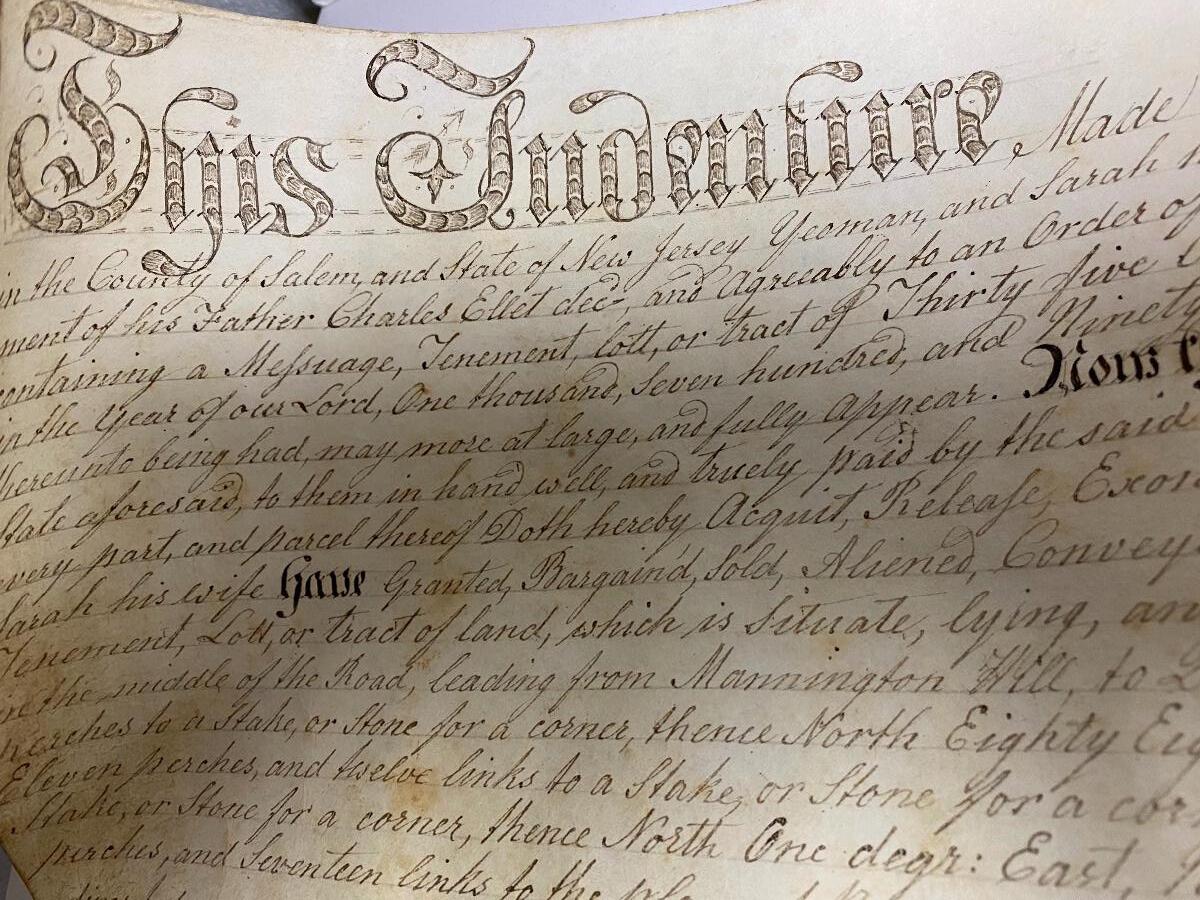 This Indenture Made
in the County of Salem, and State of New Jersey Yeoman, and Sarah
ment of his Father Charles Ellet decd, and Agreeably to an Order of
containing a Messuage, Tenement, lott, or tract of Thirty five
in the Year of our Lord, One thousand, Seven hundred, and Ninety
thereunto being had, may more at large, and fully appear. Now
State aforesaid, to them in hand well, and truely paid by the said
every part, and parcel thereof Doth hereby Acquit, Release, Exon
Sarah his wife have Granted, Bargain'd, Sold, Aliened, Convey
Tenement, Lott, or tract of land, which is Situate, lying, an
in the middle of the Road, leading from Mannington Hill, to
perches to a Stake, or Stone for a corner, thence North Eighty Eig
Eleven perches, and twelve links to a Stake, or Stone for a cor
Stake, or Stone for a corner, thence North One degr: East,
perches, and Seventeen links to the